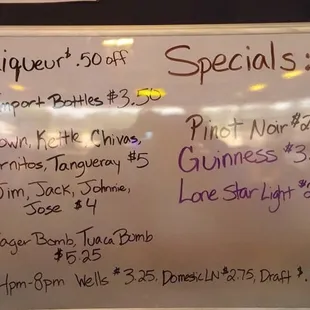 Liqueur $.50 off
Import Bottles $3.50
Kettle, Chivas,
Tangueray $5
Jim, Jack, Johnnie,
Jose $4
Jager Bomb, Tuaca Bomb
$5.25
4pm-8pm Wells $3.25, Domestic LN $2.75, Draft $.
Specials:
Pinot Noir $2
Guinness $3.
Lone Star Light $2